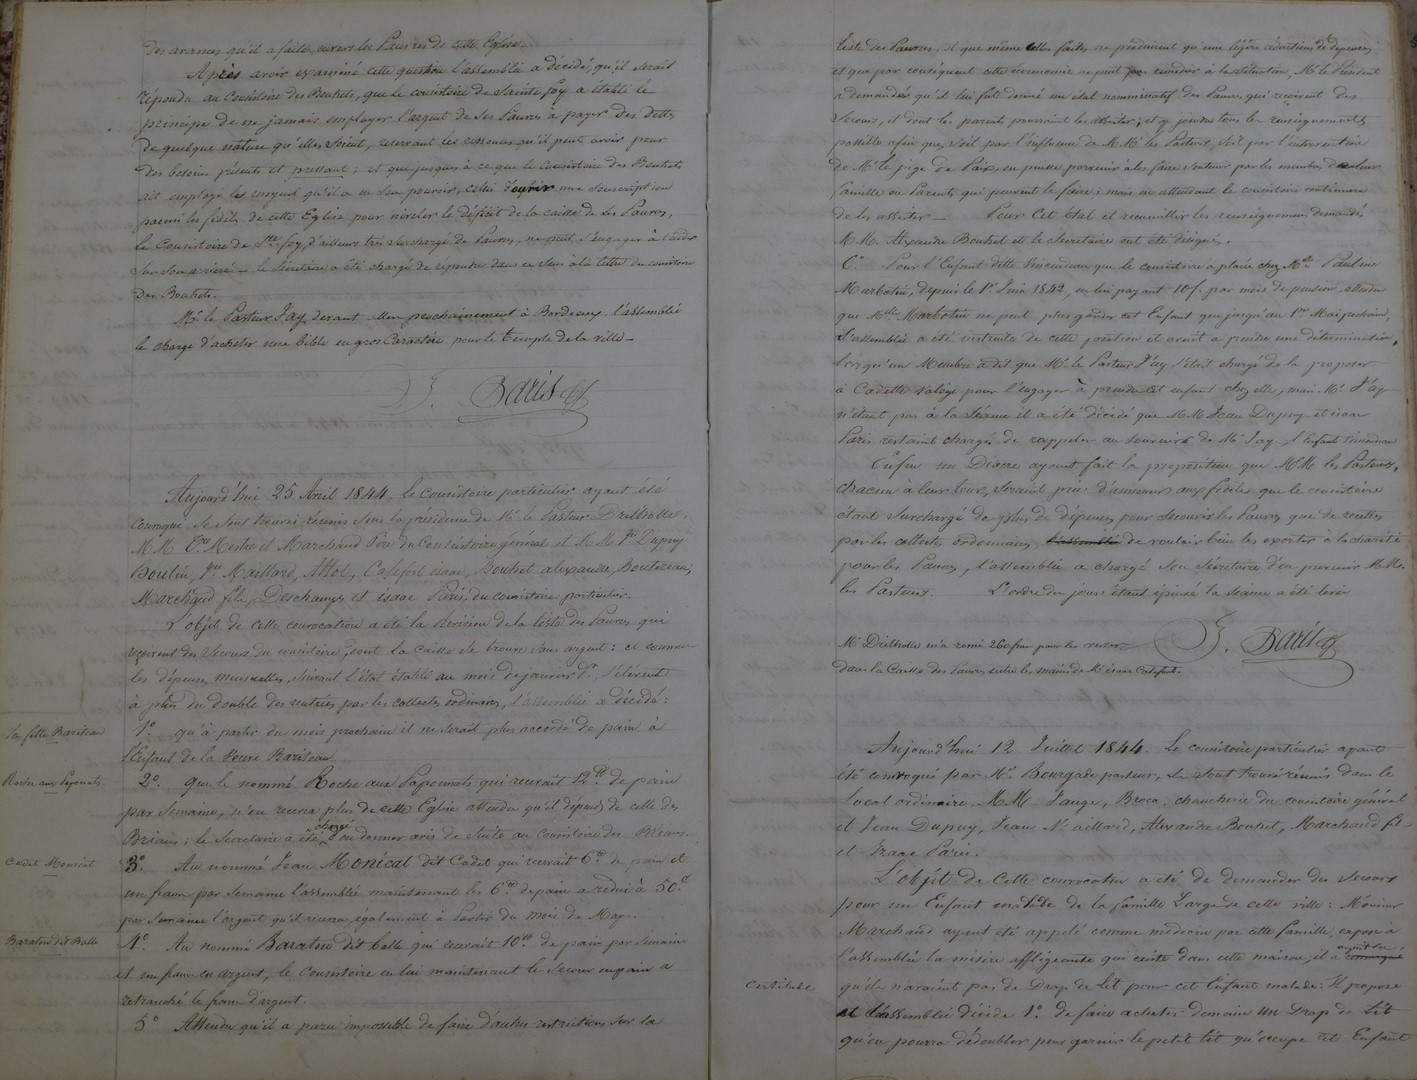 des avances qu'il a faites envers les Pauvres de cette Eglise.
Après avoir examiné cette question l'assemblée a décidé, qu'il serait
répondu au Consistoire des Bouhets, que le consistoire de Sainte foy a établi le
principe de ne jamais employer l'argent de ses Pauvres à payer des dettes
de quelque nature qu'elles soient, réservant les ressources qu'il peut avoir pour
des besoins présents et pressant ; et que jusques à ce que le Consistoire des Bouhets
ait employé les moyens qu'il a en son pouvoir, celui d'ouvrir une souscription
parmi les fidèles de cette Eglise, pour niveler le déficit de la caisse de ses Pauvres,
le Consistoire de Ste foy, d'ailleurs très surchargé de Pauvres, ne peut s'engager à l'aider
sur son arriéré — le Secrétaire a été chargé de répondre dans ce sens à la lettre du consistoire
des Bouhets.
Mr. le Pasteur Jay devant aller prochainement à Bordeaux l'assemblée
le charge d'acheter une bible en gros Caractère pour le temple de la ville —
J. Paris
Aujourd'hui 25 Avril 1844, le Consistoire particulier ayant été
convoqué, se sont trouvés réunis sous la présidence de Mr le Pasteur Drilholles,
M.M. Mestre et Marchand Père du Consistoire général et M.M. Jn Dupuy
Boulin, Jn Maillard, Calefort isaac, Bouhet alexandre,
Marchand fils, Deschamps et isaac Paris, du consistoire particulier.
L'objet de cette convocation a été la révision de la liste des Pauvres qui
reçoivent des secours du consistoire, dont la caisse se trouve sans argent : et comme
les dépenses mensuelles, suivant l'état établi au mois de janvier dr. s'élèvent
à plus du double des rentrées par les collectes ordinaires, l'assemblée a décidé :
la fille Bariteau
1° qu'à partir du mois prochain il ne serait plus accordé de pain à
l'Enfant de la Veuve Bariteau
Roche aux Paponats
2°. Que le nommé Roche aux qui recevait 12 lb de pain
par semaine, n'en recevra plus de cette Eglise attendu qu'il dépend de celle des
Briaux ; le Secrétaire a été chargé d'en donner avis de suite au Consistoire des Briaux.
Cadet Monicat
3°. Au nommé Jean Monicat dit Cadet qui recevait 6 lb de pain et
un franc par semaine l'assemblée maintenant les 6 lb de pain a réduit à 50 c
par semaine l'argent qu'il recevra, également à partir du mois de May.
Baratou dit Balle
4°. Au nommé Baratou dit balle qui recevait 10 lb de pain par semaine
et un franc en argent, le Consistoire en lui maintenant le secours en pain a
retranché le franc d'argent.
5° Attendu qu'il a paru impossible de faire d'autres restrictions sur la
liste des Pauvres, et que même celles faites ne produiront qu'une légère de dépenses,
et que par conséquent cette économie ne peut pas remédier à la situation, Mr le Président
a demandé qu'il lui fut donné un état nominatif des Pauvres qui reçoivent des
secours, et dont les parents pourraient les assister, et y joindre tous les renseignements
possible afin que, soit par l'influence de M.M. les Pasteurs, soit par l'intervention
de Mr le juge de Paix, on puisse parvenir à les faire soutenir par les membres de leur
famille ou Parents qui peuvent le faire ; mais en attendant le consistoire continuera
de les assister — Pour Cet état et recueillir les renseignements demandés
M.M. Alexandre Bouhet et le Secrétaire ont été désignés.
6°. Pour l'Enfant dite Vincendeau que le consistoire a placée chez Mlle Pauline
Marbotin, depuis le 1er Juin 1842, en lui payant 10 f. par mois de pension, attendu
que Mlle Marbotin ne peut plus garder cet Enfant que jusqu'au 1er Mai prochain,
L'assemblée a été instruite de cette position et avait à prendre une détermination,
lorsqu'un Membre a dit que Mr. le Pasteur Jay s'était chargé de la proposer
à Cadette pour l'engager à prendre cet enfant chez elle, mais Mr. Jay
n'étant pas à la séance il a été décidé que M.M. Jean Dupuy et isaac
Paris restaient chargés de rappeler au souvenir de Mr Jay l'Enfant Vincendeau
Enfin un Diacre ayant fait la proposition que M.M. les Pasteurs,
chacun à leur tour, seraient priés d'annoncer aux fidèles que le consistoire
étant surchargé de plus de dépenses pour secourir les Pauvres que de recettes
par les collectes ordinaires, l'assemblée de vouloir bien les exhorter à la charité
pour les Pauvres, l'assemblée a chargé son Secrétaire d'en prévenir M.M.
les Pasteurs. L'ordre du jour étant épuisé la séance a été levée
Mr Drilholles m'a remis 260 fr. pour les verser
dans la Caisse des Pauvres entre les mains de Mr isaac Calefort.
J. Paris
Aujourd'hui 12 Juillet 1844. Le consistoire particulier ayant
été convoqué par Mr. Bourgade pasteur, se sont trouvé réunis dans le
local ordinaire M.M. Jauge, Broca, du consistoire général
et Jean Dupuy, Jean Maillard, Alexandre Bouhet, Marchand fils
et Isaac Paris.
L'objet de cette convocation a été de demander du secours
pour un Enfant malade de la famille Large de cette ville : Monsieur
Marchand ayant été appelé comme médecin par cette famille, expose à
l'assemblée la misère affligeante qui existe dans cette maison, il a
Certitude
qu'ils n'avaient pas de Drap de lit pour cet Enfant malade : Il propose
et l'assemblée décide 1°. de faire acheter demain un Drap de lit
qu'on pourra dédoubler pour garnir le petit lit qu'occupe cet Enfant